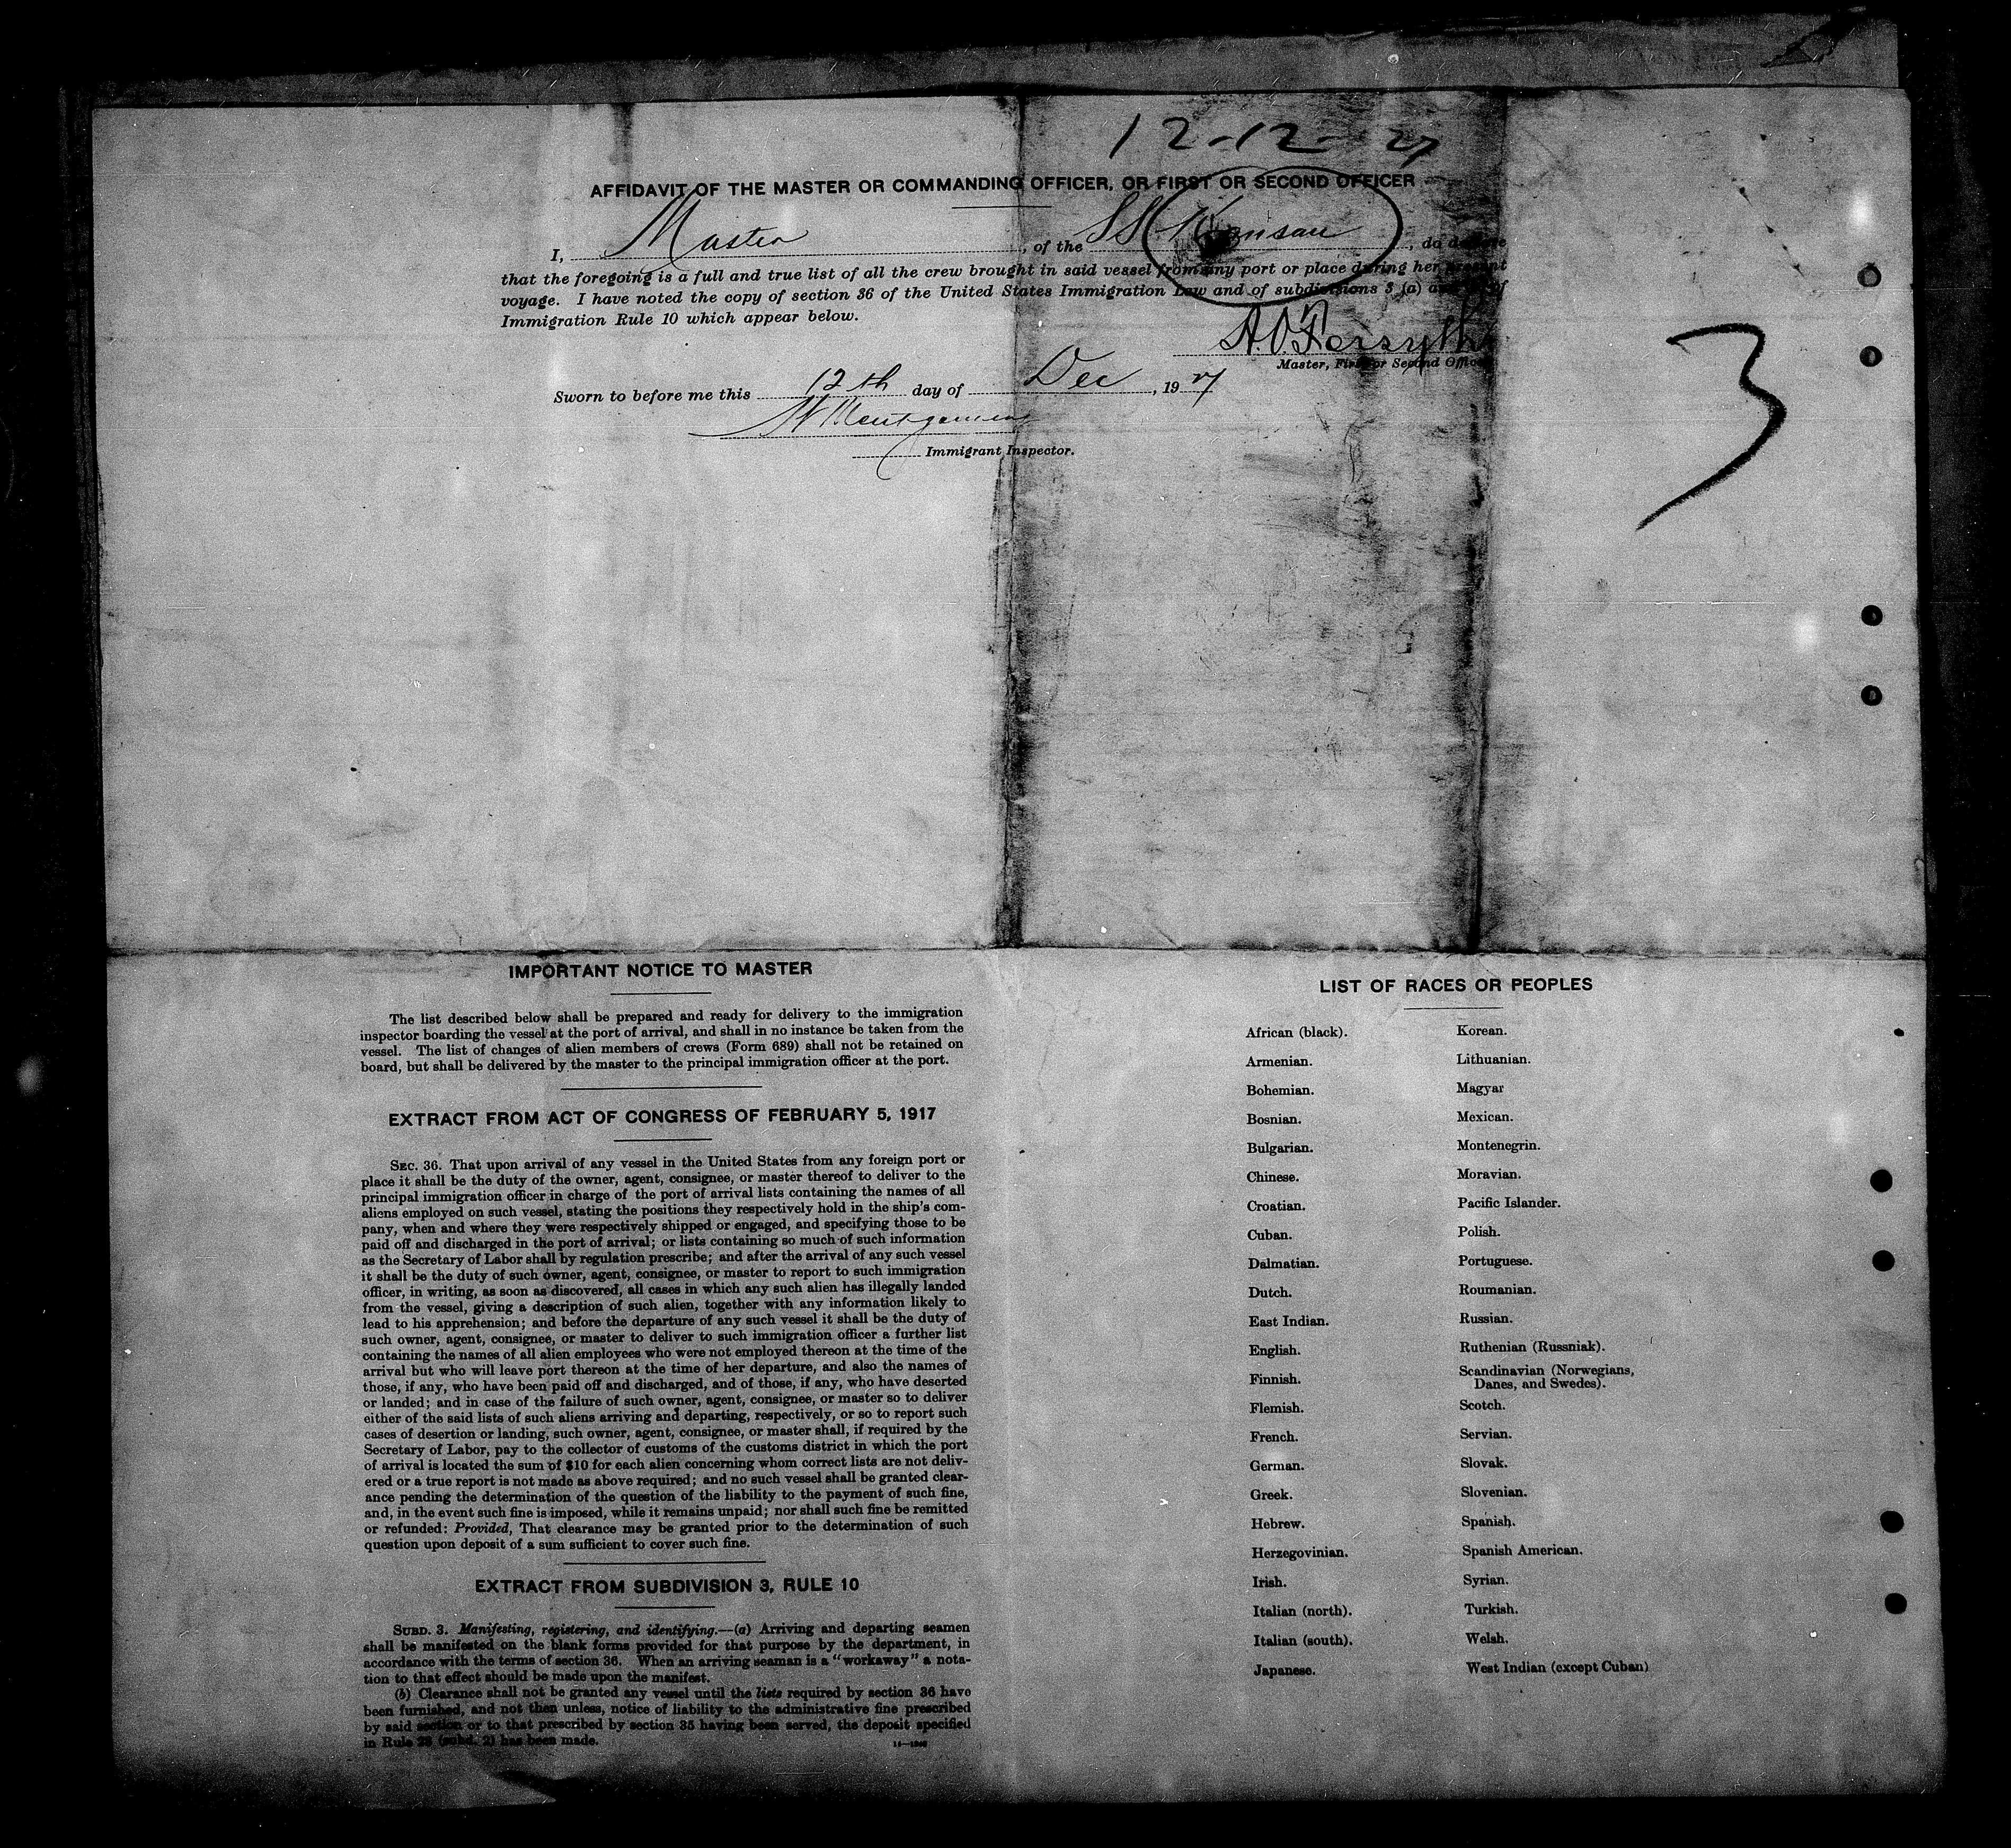 12-12-27
AFFIDAVIT OF THE MASTER OR COMMANDING OFFICER, OR FIRST OR SECOND OFFICER
I, Master, of the SS Kansan, do declare
that the foregoing is a full and true list of all the crew brought in said vessel from any port or place during her present
voyage. I have noted the copy of section 36 of the United States Immigration Law and of subdivisions 3 (a) and of
Immigration Rule 10 which appear below.
Forsyth
Master, First or Second Officer
Sworn to before me this 12th day of Dec, 1927
Montgomery
Immigrant Inspector.
3
IMPORTANT NOTICE TO MASTER
The list described below shall be prepared and ready for delivery to the immigration
inspector boarding the vessel at the port of arrival, and shall in no instance be taken from the
vessel. The list of changes of alien members of crews (Form 689) shall not be retained on
board, but shall be delivered by the master to the principal immigration officer at the port.
EXTRACT FROM ACT OF CONGRESS OF FEBRUARY 5, 1917
SEC. 36. That upon arrival of any vessel in the United States from any foreign port or
place it shall be the duty of the owner, agent, consignee, or master thereof to deliver to the
principal immigration officer in charge of the port of arrival lists containing the names of all
aliens employed on such vessel, stating the positions they respectively hold in the ship's com-
pany, when and where they were respectively shipped or engaged, and specifying those to be
paid off and discharged in the port of arrival; or lists containing so much of such information
as the Secretary of Labor shall by regulation prescribe; and after the arrival of any such vessel
it shall be the duty of such owner, agent, consignee, or master to report to such immigration
officer, in writing, as soon as discovered, all cases in which any such alien has illegally landed
from the vessel, giving a description of such alien, together with any information likely to
lead to his apprehension; and before the departure of any such vessel it shall be the duty of
such owner, agent, consignee, or master to deliver to such immigration officer a further list
containing the names of all alien employees who were not employed thereon at the time of the
arrival but who will leave port thereon at the time of her departure, and also the names of
those, if any, who have been paid off and discharged, and of those, if any, who have deserted
or landed; and in case of the failure of such owner, agent, consignee, or master so to deliver
either of the said lists of such aliens arriving and departing, respectively, or so to report such
cases of desertion or landing, such owner, agent, consignee, or master shall, if required by the
Secretary of Labor, pay to the collector of customs of the customs district in which the port
of arrival is located the sum of $10 for each alien concerning whom correct lists are not deliv-
ered or a true report is not made as above required; and no such vessel shall be granted clear-
ance pending the determination of the question of the liability to the payment of such fine,
and, in the event such fine is imposed, while it remains unpaid; nor shall such fine be remitted
or refunded: Provided, That clearance may be granted prior to the determination of such
question upon deposit of a sum sufficient to cover such fine.
EXTRACT FROM SUBDIVISION 3, RULE 10
SUBD. 3. Manifesting, registering, and identifying.—(a) Arriving and departing seamen
shall be manifested on the blank forms provided for that purpose by the department, in
accordance with the terms of section 36. When an arriving seaman is a "workaway" a nota-
tion to that effect should be made upon the manifest.
(b) Clearance shall not be granted any vessel until the lists required by section 36 have
been furnished, and not then unless, notice of liability to the administrative fine prescribed
by said section or to that prescribed by section 35 having been served, the deposit specified
in Rule 28 (subd. 2) has been made.
LIST OF RACES OR PEOPLES
African (black).
Armenian.
Bohemian.
Bosnian.
Bulgarian.
Chinese.
Croatian.
Cuban.
Dalmatian.
Dutch.
East Indian.
English.
Finnish.
Flemish.
French.
German.
Greek.
Hebrew.
Herzegovinian.
Irish.
Italian (north).
Italian (south).
Japanese.
Korean.
Lithuanian.
Magyar
Mexican.
Montenegrin.
Moravian.
Pacific Islander.
Polish.
Portuguese.
Roumanian.
Russian.
Ruthenian (Russniak).
Scandinavian (Norwegians,
Danes, and Swedes).
Scotch.
Servian.
Slovak.
Slovenian.
Spanish.
Spanish American.
Syrian.
Turkish.
Welsh.
West Indian (except Cuban)